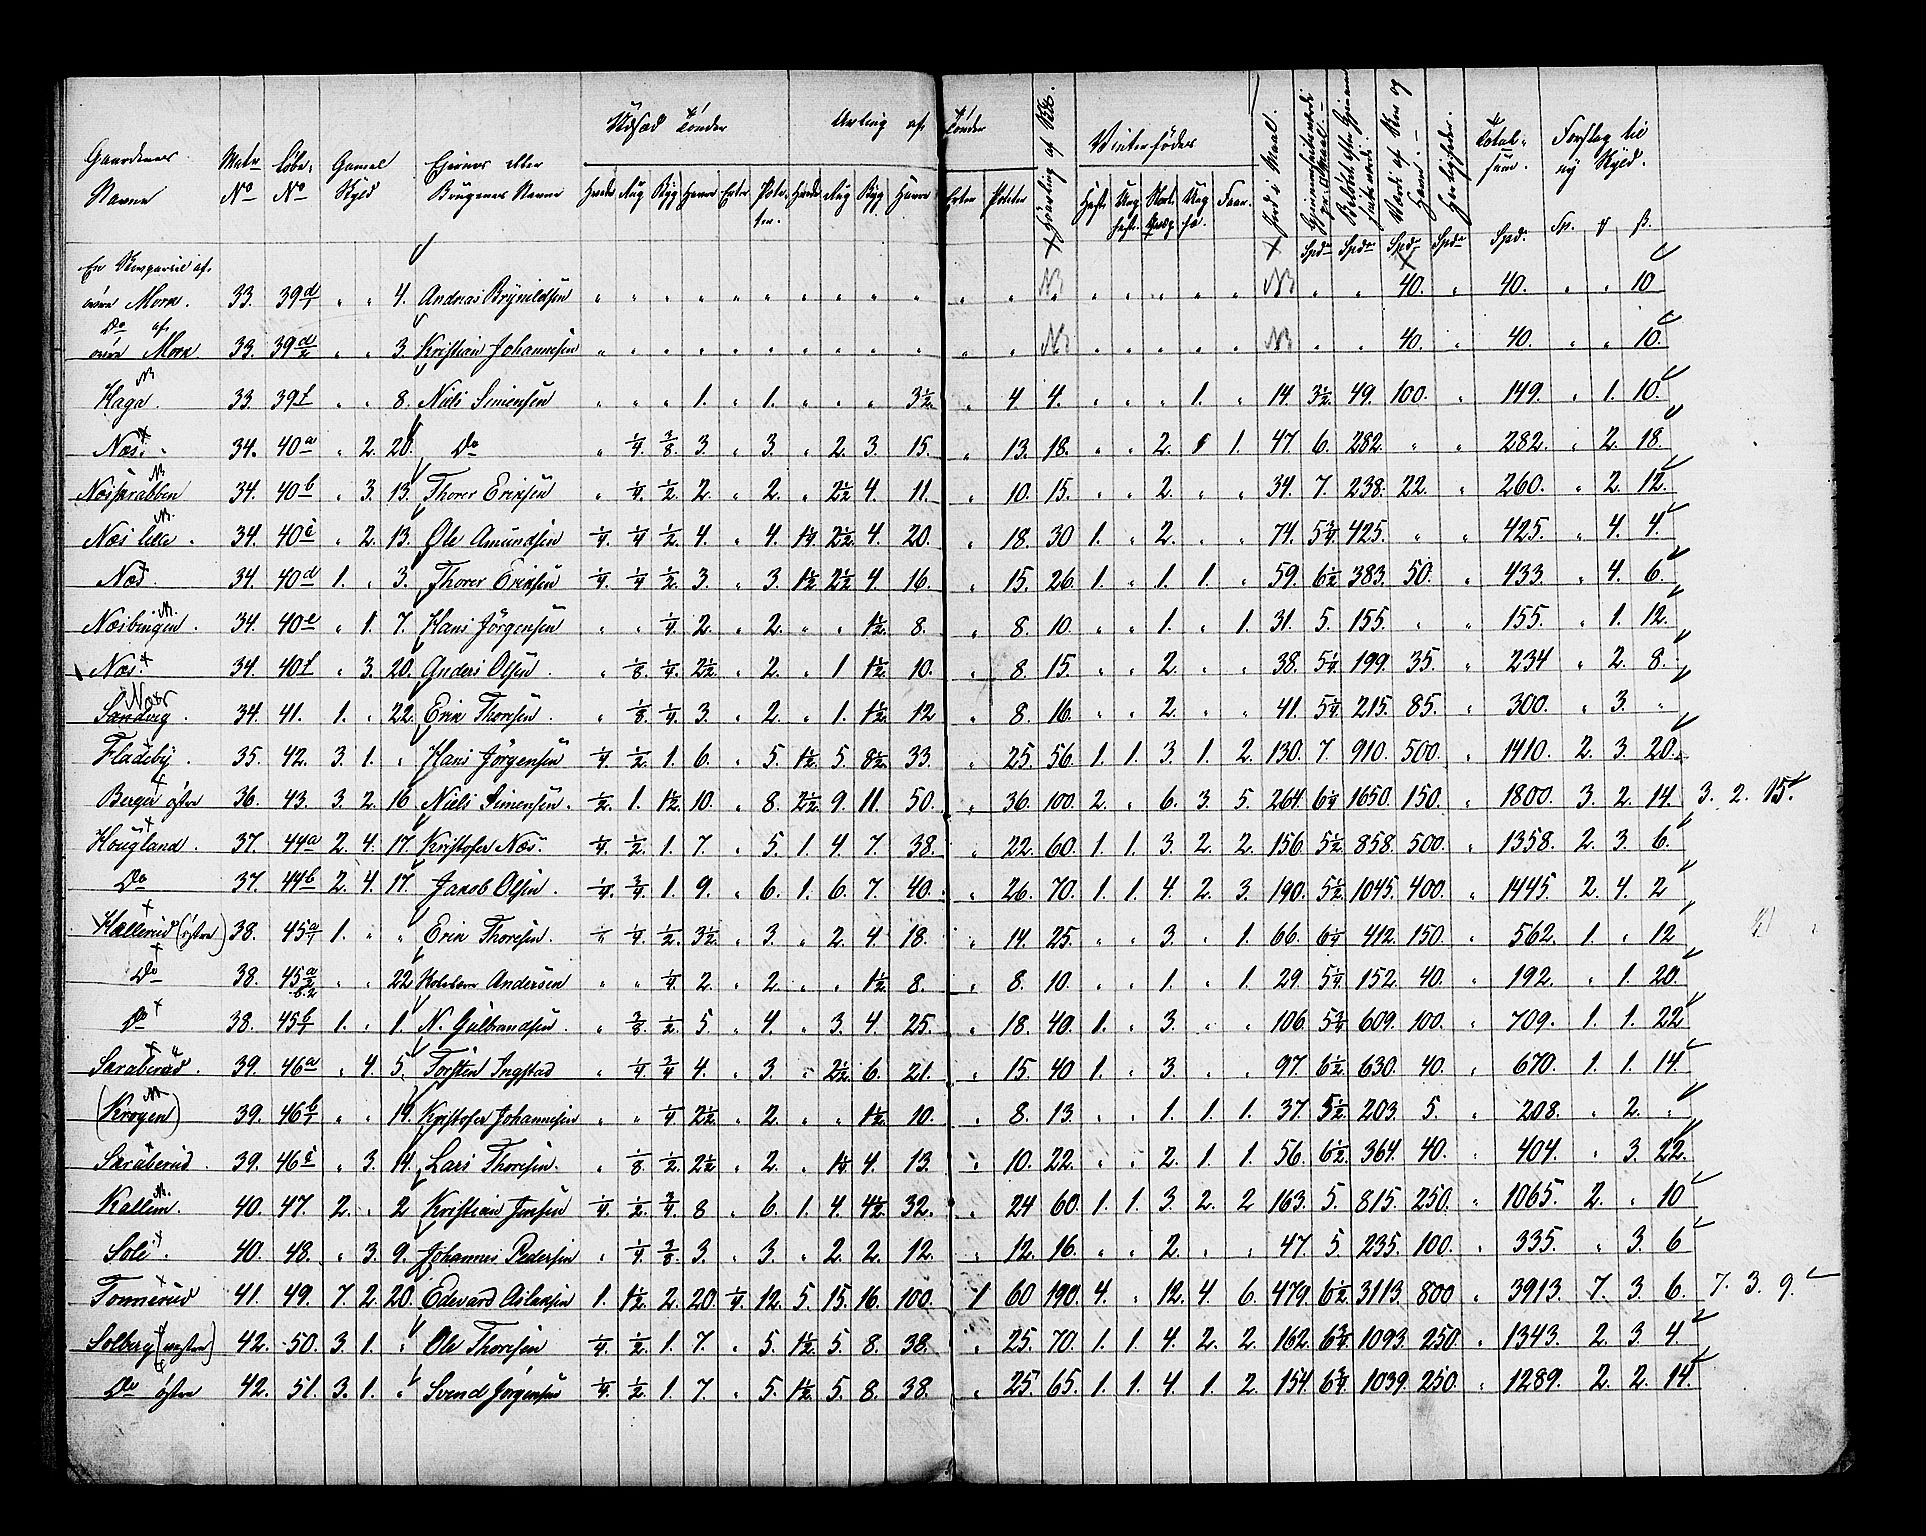 Gaardenes Navne Matr No Løbe No Gamel Skyld Eiernes eller Brugenes Navne Udsæd Tønder Avling af Tønder Vinterføder Total sum Forslag til ny Skyld
Hvede Rug Byg Havre Erter Poteter Hvede Rug Byg Havre Erter Poteter
Spd Spd Spd Spd Spd.
En Skovparcel af
øvre Mork. 33. 39 d/1 " " 4. Andreas Brynildsen " " " " " " " " " " " " " " " " " " " " " 40. " 40. " " 10
Do af
øvre Mork 33. 39 d/2 " " 3. Kristian Johannesen " " " " " " " " " " " " " " " " " " " " " 40. " 40. " " 10.
Haga. 33. 39 f " " 8. Niels Simensen " " " 1. " 1. " " " 3½. " 4 4. " " " 1. " 14. 3½. 49. 100. " 149. " 1. 10.
Næs. 34. 40 a " 2. 20. Do " ¼ 3/8. 3. " 3. " 2. 3. 15. " 13. 18. " " 2. 1 1. 47. 6. 282. " " 282. " 2. 18.
Næskrabben 34. 40 b " 3. 13. Thorer Eriksen " ¼. ½. 2. " 2. " 2½ 4. 11. " 10. 15. " " 2. " " 34. 7. 238. 22. " 260. " 2. 12.
Næs lille. 34. 40 c " 2. 13. Ole Amundsen ¼. ¼ ½. 4. " 4. 1¼. 2½. 4. 20. " 18. 30 1. " 2. " " 74. 5¾. 425. " " 425. " 4. 4.
Næs. 34. 40 d 1. " 3. Thorer Eriksen ¼. ¼ ½ 3. " 3. 1½. 2½ 4. 16. " 15. 26. 1. " 1. 1. " 59. 6½ 383. 50. " 433. " 4. 6.
Næsbingen. 34. 40 e " 1. 7. Hans Jörgensen " " ¼. 2. " 2. " " 1½. 8. " 8. 10. " " 1. " 1. 31. 5. 155. " " 155. " 1. 12.
Næs. 34. 40 f " 3. 20. Anders Olsen " 1/8. ¼. 2½. " 2. " 1 1½. 10. " 8. 15. " " 2. " " 38. 5¼. 199. 35. " 234 " 2. 8.
Sandvig. 34. 41. 1. " 22. Erik Thoresen. " 1/8. ¼. 3. " 2. " 1. 1½. 12 " 8. 16. " " 2. " " 41. 5¼. 215. 85. " 300. " 3. "
Fladeby. 35. 42. 3. 1. " Hans Jörgensen ¼. ½. 1. 6. " 5. 1½. 5. 8½. 33. " 25. 56. 1. 1. 3. 1. 2. 130. 7. 910. 500. " 1410. 2. 3. 20.
Berger östre 36. 43. 3. 2. 16. Niels Simensen. ½. 1. 1½. 10. " 8. 2½. 9. 11. 50. " 36. 100. 2. " 6. 3. 5. 264. 6¼. 1650. 150. " 1800. 3. 2. 14. 3. 2. 15.
Hougland. 37. 44 a 2. 4. 17. Kristofer Næs. ¼. ½. 1. 7. " 5. 1. 4. 7. 38. " 22. 60. 1. 1. 3. 2. 2. 156. 5½. 858. 500. " 1358. 2. 3. 6.
Do 37. 44 b 2. 4. 17. Jakob Olsen. ¼. ¾. 1. 9. " 6. 1. 6. 7. 40. " 26. 70. 1. 1. 4. 2. 3. 190. 5½. 1045. 400. " 1445. 2. 4. 2
Kallerud (östre) 38. 45 a/1 1. " " Erik Thoresen. " ¼. ½. 3½. " 3. " 2. 4. 18. " 14. 25. " " 3. " 1. 66. 6¼. 412. 150. " 562. 1. " 12
Do 38. 45 a/2 b.2 " " 22. Andersen " " ¼. 2. " 2. " " 1½. 8. " 8. 10. " " 1. " 1. 29. 5¼. 152. 40. " 192. " 1. 20.
Do 38. 45 b/1 1. " 1. N. Gulbrandsen. " 3/8. ½. 5 " 4. " 3. 4. 25. " 18. 40. 1. " 3. " " 106. 5¾. 609. 100. " 709. 1. 1. 22
Skraberud. 39. 46 a " 4. 5. Torsten Ingstad " ¼. ¾ 4. " 3. " 2½. 6. 21. " 15. 40 1. " 3. " " 97. 6½. 630. 40. " 670. 1. 1. 14.
(Krogen) 39. 46 b/1 " " 19. Kristofer Johannesen " " ¼ 2½. " 2. " " 1½. 10. " 8. 13. " " 1. 1. 1. 37. 5½. 203. 5. " 208. " 2. "
Skraberud. 39. 46 c " 3. 14. Lars Thoresen. " 1/8. ½. 2½ " 2. " 1¼. 4. 13. " 10. 22. " " 2. 1. 1. 56. 6½. 364. 40. " 404. " 3. 22.
Kallem. 40. 47. 2. " 2 Kristian Jensen ¼. ½. ¾. 8 " 6. 1. 4. 4½. 32. " 24 60. 1. 1. 3. 2. 2 163. 5. 815. 250. " 1065. 2. " 10
Soli. 40. 48. " 3. 9. Johannes Pedersen " ¼ 3/8. 3. " 3. " 2. 2. 12. " 12. 16. " " 2. " " 47. 5 235. 100. " 335. " 3. 6
Tonnerud 41. 49. 7. 2. 20. Edevard Aslaksen 1. 1½. 2. 20. ¼. 12. 5. 15. 16. 100. 1 60 190. 4. " 12. 4. 6. 479. 6½. 3113. 800 " 3913. 7. 3. 6. 7. 3. 9.
Solberg (vestre) 42. 50. 3. 1. " Ole Thoresen ¼. ½. 1. 7. " 5. 1½. 5. 8. 38. " 25. 70. 1. 1. 4. 2. 2. 162. 6¾. 1093. 250. " 1343. 2. 3. 4.
Do östre 42. 51. 3. 1. " Svend Jørgensen ¼. ½. 1. 7. " 5. 1½. 5. 8. 38. " 25. 65. 1. 1. 4. 1. 2. 154. 6¾. 1039. 250. " 1289. 2. 2. 14.